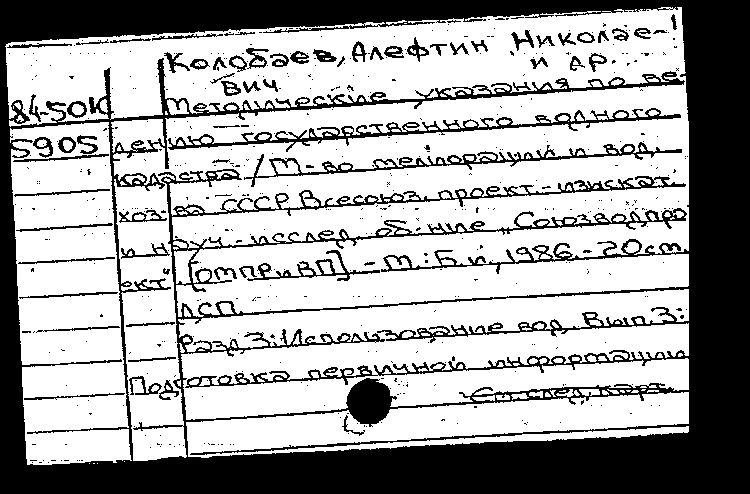 Колобаев, Алефтин Николае-
вич и др...
84-50К Методические указания по ве-
5905 дению государственного водного
кадастра / М-во мелиорации и вод.
хоз-ва СССР, Всесоюз. проект.-изыскат.
и науч.-исслед. об-ние „Союзводпро
ект". [ОМПР и ВП]. - М.: Б. и., 1986. - 20 см.
ДСП.
Разд. 3: Использование вод. Вып. 3:
Подготовка первичной информации
См. след. карт.